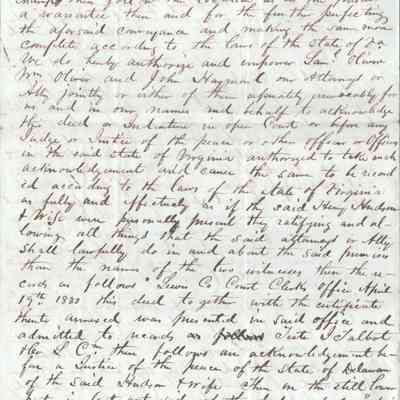 a warrantee then and for the further perfecting
the aforsaid conveyance and making the same more
complete according to the laws of the State of Va
We do hereby authorize and empower Sam. Oliver
Wm Oliver and John Haymond our Attorneys or
Atty jointly or either of them seperately irrevocably for
us and in our names and behalf to acknowledge
this deed or Indenture in open Court or before any
Judge or Justice of the peace or other officer or Officers
in the said state of Virginia authorized to take such
acknowledgement and cause the same to be record
ed according to the laws of the state of Virginia
as fully and effectively as if the said Henry Hudson
& Wife were personally present they ratifying and al-
lowing all things that the said attorneys or Atty
shall lawfully do in and about the said premises
than the names of the two witnesses then the re
cords as follows "Lewis Co Court Clerks office April
19th 1820 this deed together with the certificate
thereto annexed was presented in said office and
admitted to records as follows Teste J Talbot
then follows an acknowledgement be-
fore a Justice of the peace of the State of Delaware
of the said Hudson & Wife then in the still lower